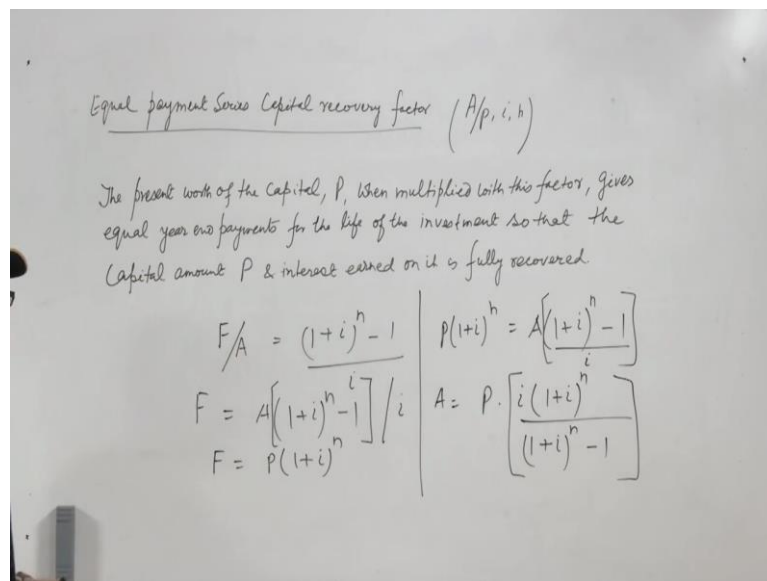 Equal payment Series Capital recovery factor (A/p, i, n)
The present worth of the Capital, P, when multiplied with this factor, gives
equal year end payments for the life of the investment so that the
Capital amount P & interest earned on it is fully recovered
F/A = (1+i)^n - 1 / i
F = A[(1+i)^n - 1] / i
F = P(1+i)^n
P(1+i)^n = A[(1+i)^n - 1 / i]
A = P. [i(1+i)^n / (1+i)^n - 1]